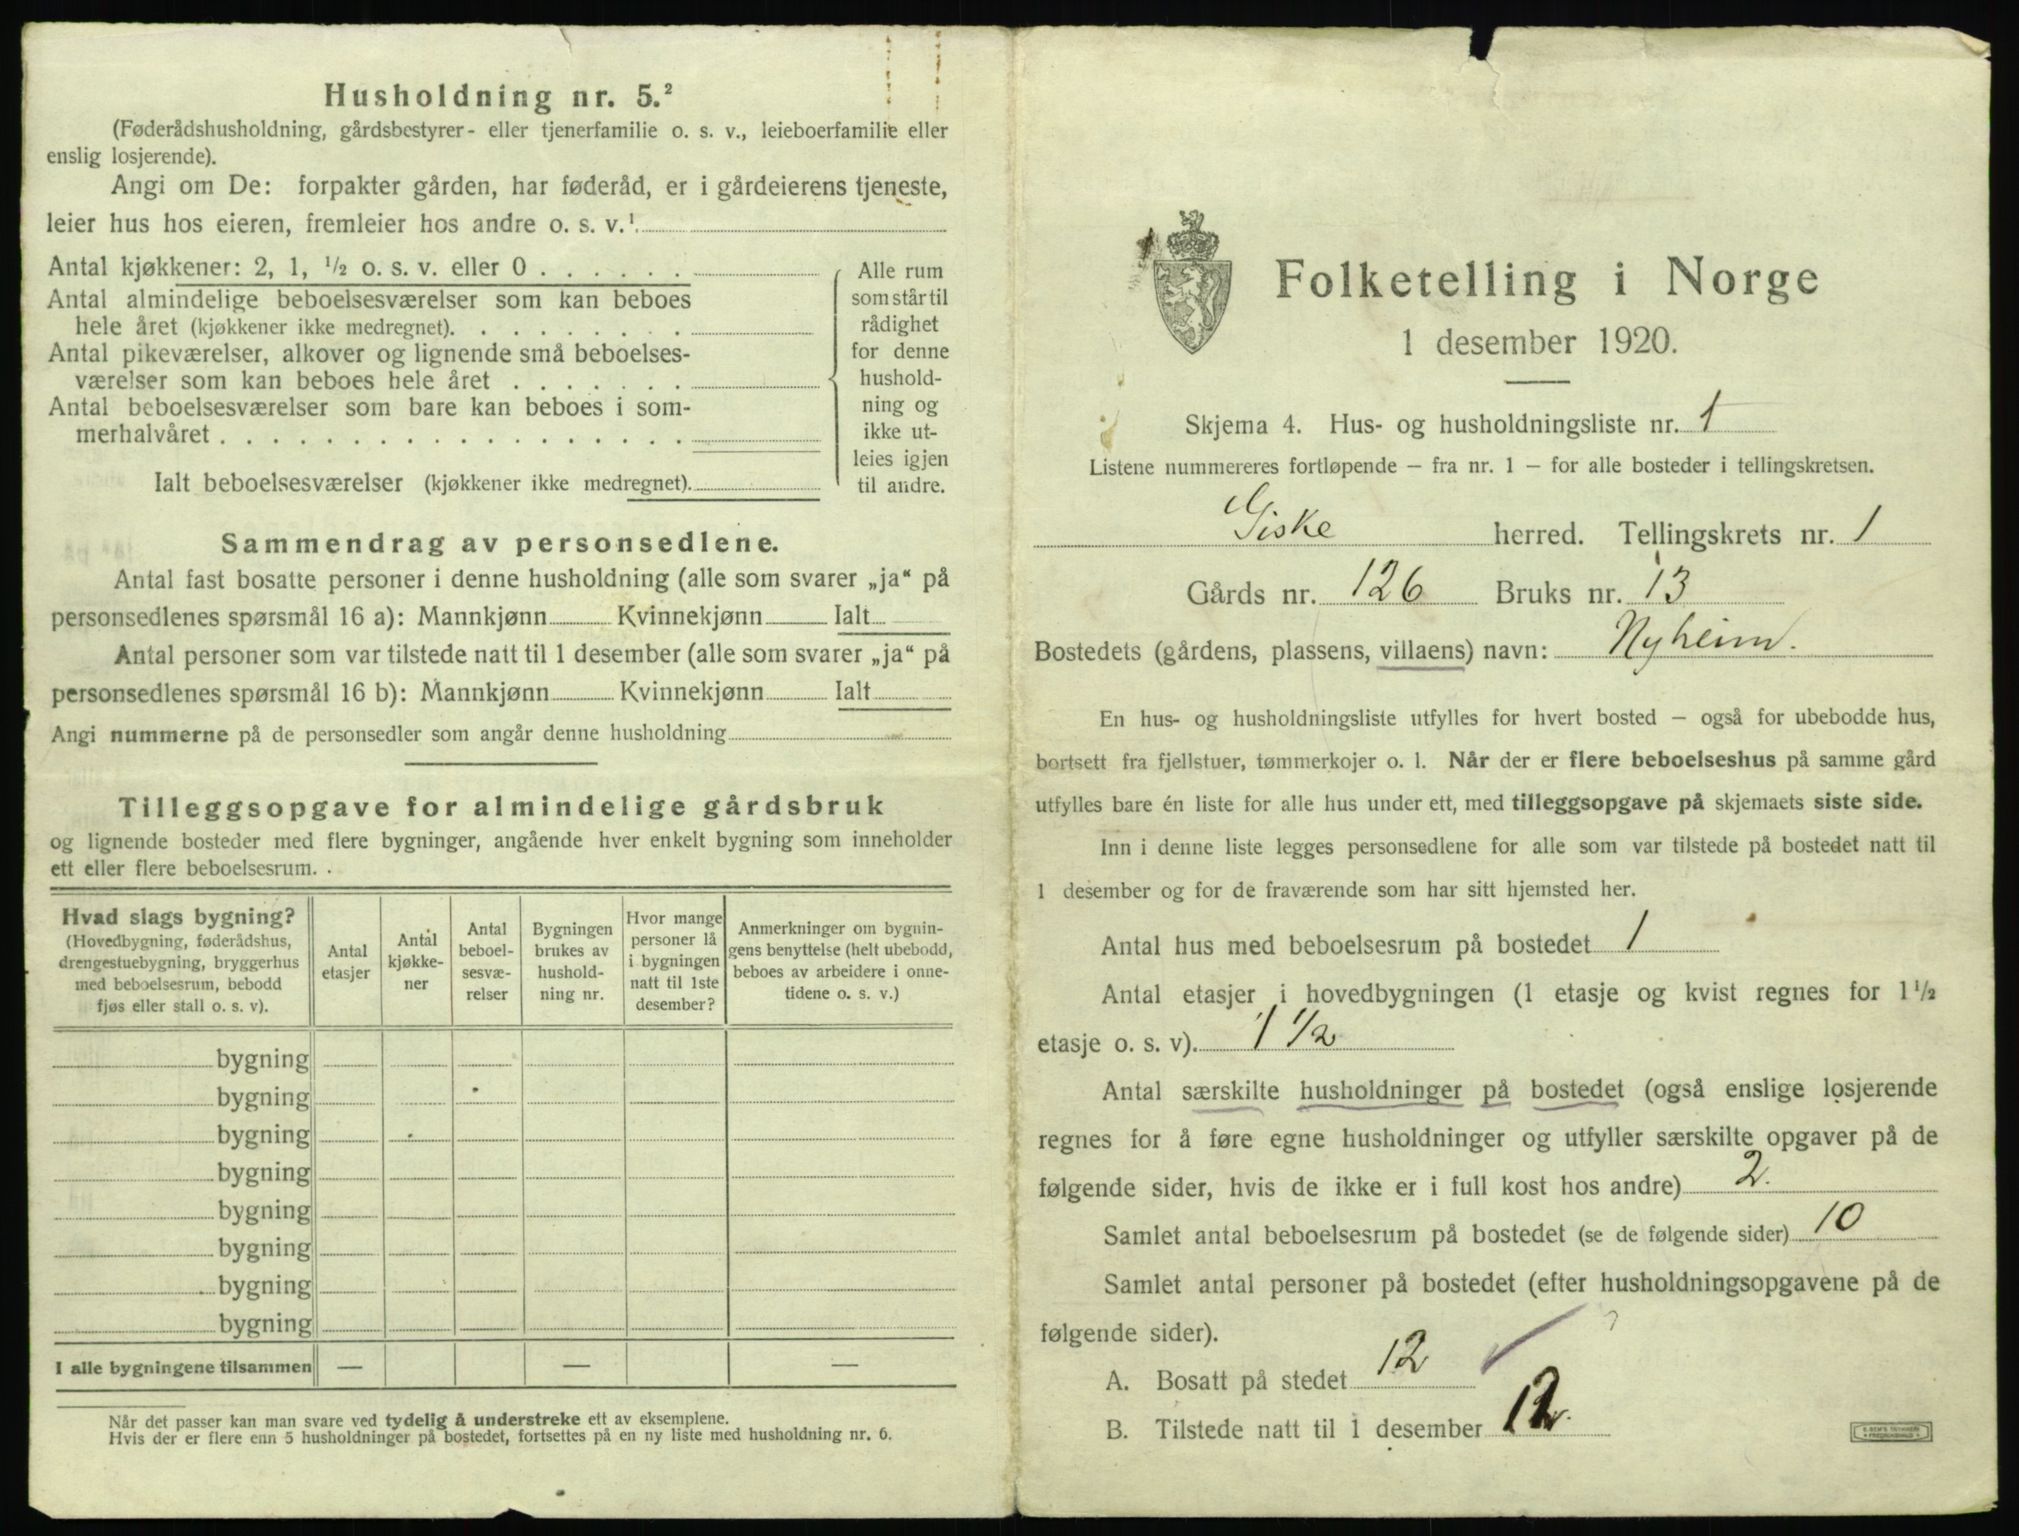 Husholdning nr. 5.²
(Føderådshusholdning, gårdsbestyrer- eller tjenerfamilie o. s. v., leieboerfamilie eller
enslig losjerende).
Angi om De: forpakter gården, har føderåd, er i gårdeierens tjeneste,
leier hus hos eieren, fremleier hos andre o. s. v.¹
Antal kjøkkener: 2, 1, ½ o. s. v. eller 0 . . . . . .
Antal almindelige beboelsesværelser som kan beboes
hele året (kjøkkener ikke medregnet). . . . . . . . .
Antal pikeværelser, alkover og lignende små beboelses-
værelser som kan beboes hele året . . . . . . .
Antal beboelsesværelser som bare kan beboes i som-
merhalvåret . . . . . . . . . . . . . . . . . .
Ialt beboelsesværelser (kjøkkener ikke medregnet).
Alle rum
som står til
rådighet
for denne
hushold-
ning og
ikke ut-
leies igjen
til andre.
Sammendrag av personsedlene.
Antal fast bosatte personer i denne husholdning (alle som svarer „ja“ på
personsedlenes spørsmål 16 a): Mannkjønn Kvinnekjønn Ialt
Antal personer som var tilstede natt til 1 desember (alle som svarer „ja“ på
personsedlenes spørsmål 16 b): Mannkjønn Kvinnekjønn Ialt
Angi nummerne på de personsedler som angår denne husholdning
Tilleggsopgave for almindelige gårdsbruk
og lignende bosteder med flere bygninger, angående hver enkelt bygning som inneholder
ett eller flere beboelsesrum.
Hvad slags bygning?
(Hovedbygning, føderådshus,
drengestuebygning, bryggerhus
med beboelsesrum, bebodd
fjøs eller stall o. s. v).
Antal
etasjer
Antal
kjøkke-
ner
Antal
beboel-
sesvæ-
relser
Bygningen
brukes av
hushold-
ning nr.
Hvor mange
personer lå
i bygningen
natt til 1ste
desember?
Anmerkninger om bygnin-
gens benyttelse (helt ubebodd,
beboes av arbeidere i onne-
tidene o. s. v.)
bygning
bygning
bygning
bygning
bygning
bygning
bygning
bygning
I alle bygningene tilsammen — — —
Når det passer kan man svare ved tydelig å understreke ett av eksemplene.
Hvis der er flere enn 5 husholdninger på bostedet, fortsettes på en ny liste med husholdning nr. 6.
Folketelling i Norge
1 desember 1920.
Skjema 4. Hus- og husholdningsliste nr. 1
Listene nummereres fortløpende – fra nr. 1 – for alle bosteder i tellingskretsen.
Giske herred. Tellingskrets nr. 1
Gårds nr. 126 Bruks nr. 13
Bostedets (gårdens, plassens, villaens) navn: Nyheim.
En hus- og husholdningsliste utfylles for hvert bosted – også for ubebodde hus,
bortsett fra fjellstuer, tømmerkojer o. l. Når der er flere beboelseshus på samme gård
utfylles bare én liste for alle hus under ett, med tilleggsopgave på skjemaets siste side.
Inn i denne liste legges personsedlene for alle som var tilstede på bostedet natt til
1 desember og for de fraværende som har sitt hjemsted her.
Antal hus med beboelsesrum på bostedet 1
Antal etasjer i hovedbygningen (1 etasje og kvist regnes for 1½
etasje o. s. v). 1 1/2
Antal særskilte husholdninger på bostedet (også enslige losjerende
regnes for å føre egne husholdninger og utfyller særskilte opgaver på de
følgende sider, hvis de ikke er i full kost hos andre) 2.
Samlet antal beboelsesrum på bostedet (se de følgende sider) 10
Samlet antal personer på bostedet (efter husholdningsopgavene på de
følgende sider).
A. Bosatt på stedet 12
B. Tilstede natt til 1 desember 12.